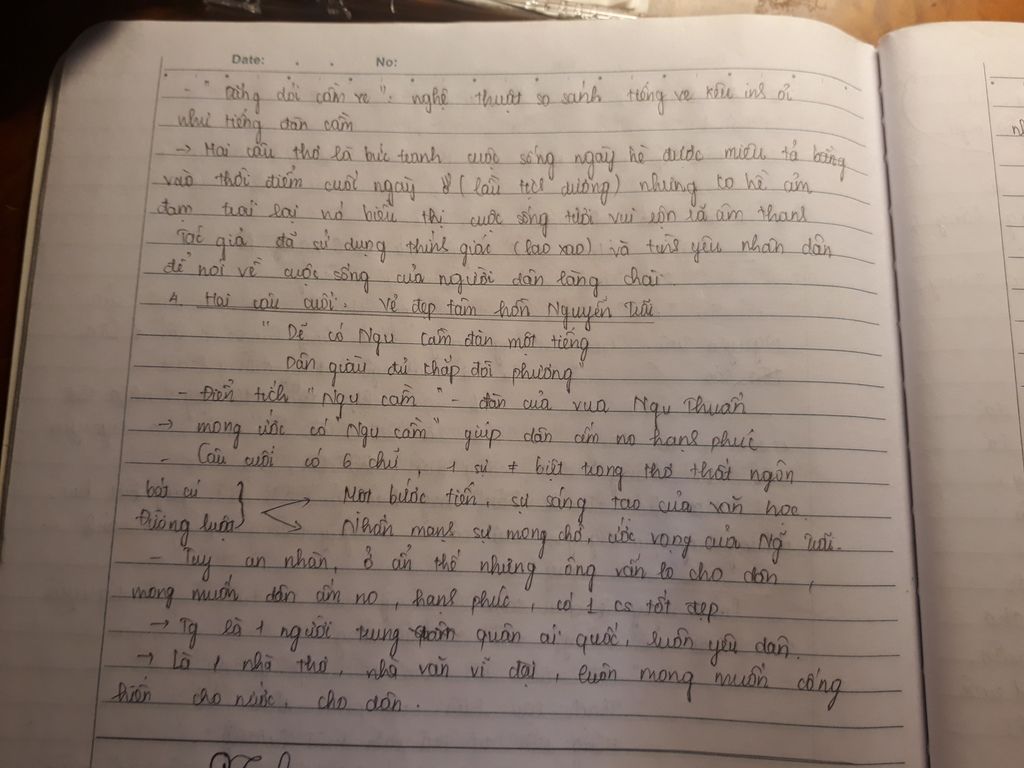 Date: . . No:
- "dắng dỏi cầm ve": nghệ thuật so sánh tiếng ve kêu inh ỏi
như tiếng đàn cầm
→ Hai câu thơ là bức tranh cuộc sống ngày hè được miêu tả bằng
vào thời điểm cuối ngày (lầu tịch dương) nhưng ko hề ảm
đạm trái lại nó biểu thị cuộc sống tươi vui rộn rã âm thanh
Tác giả đã sử dụng thính giác (lao xao) và tình yêu nhân dân
để nói về cuộc sống của người dân làng chài.
4. Hai câu cuối. Vẻ đẹp tâm hồn Nguyễn Trãi
"Dẽ có Ngu cầm đàn một tiếng
Dân giàu đủ khắp đòi phương"
- Điển tích "Ngu cầm" - đàn của vua Ngu Thuấn
→ mong ước có "Ngu cầm" giúp dân ấm no hạnh phúc
- Câu cuối có 6 chữ, 1 sự ≠ biệt trong thơ thất ngôn
bát cú
Đường luật
Một bước tiến, sự sáng tạo của văn học
Nhấn mạnh sự mong chờ, ước vọng của Ng~ Trãi.
- Tuy an nhàn, ở ẩn thế nhưng ông vẫn lo cho dân,
mong muốn dân ấm no, hạnh phúc, có 1 cs tốt đẹp.
→ Tg là 1 người trung quân ái quốc, luôn yêu dân.
→ Là 1 nhà thơ, nhà văn vĩ đại, luôn mong muốn cống
hiến cho nước, cho dân.